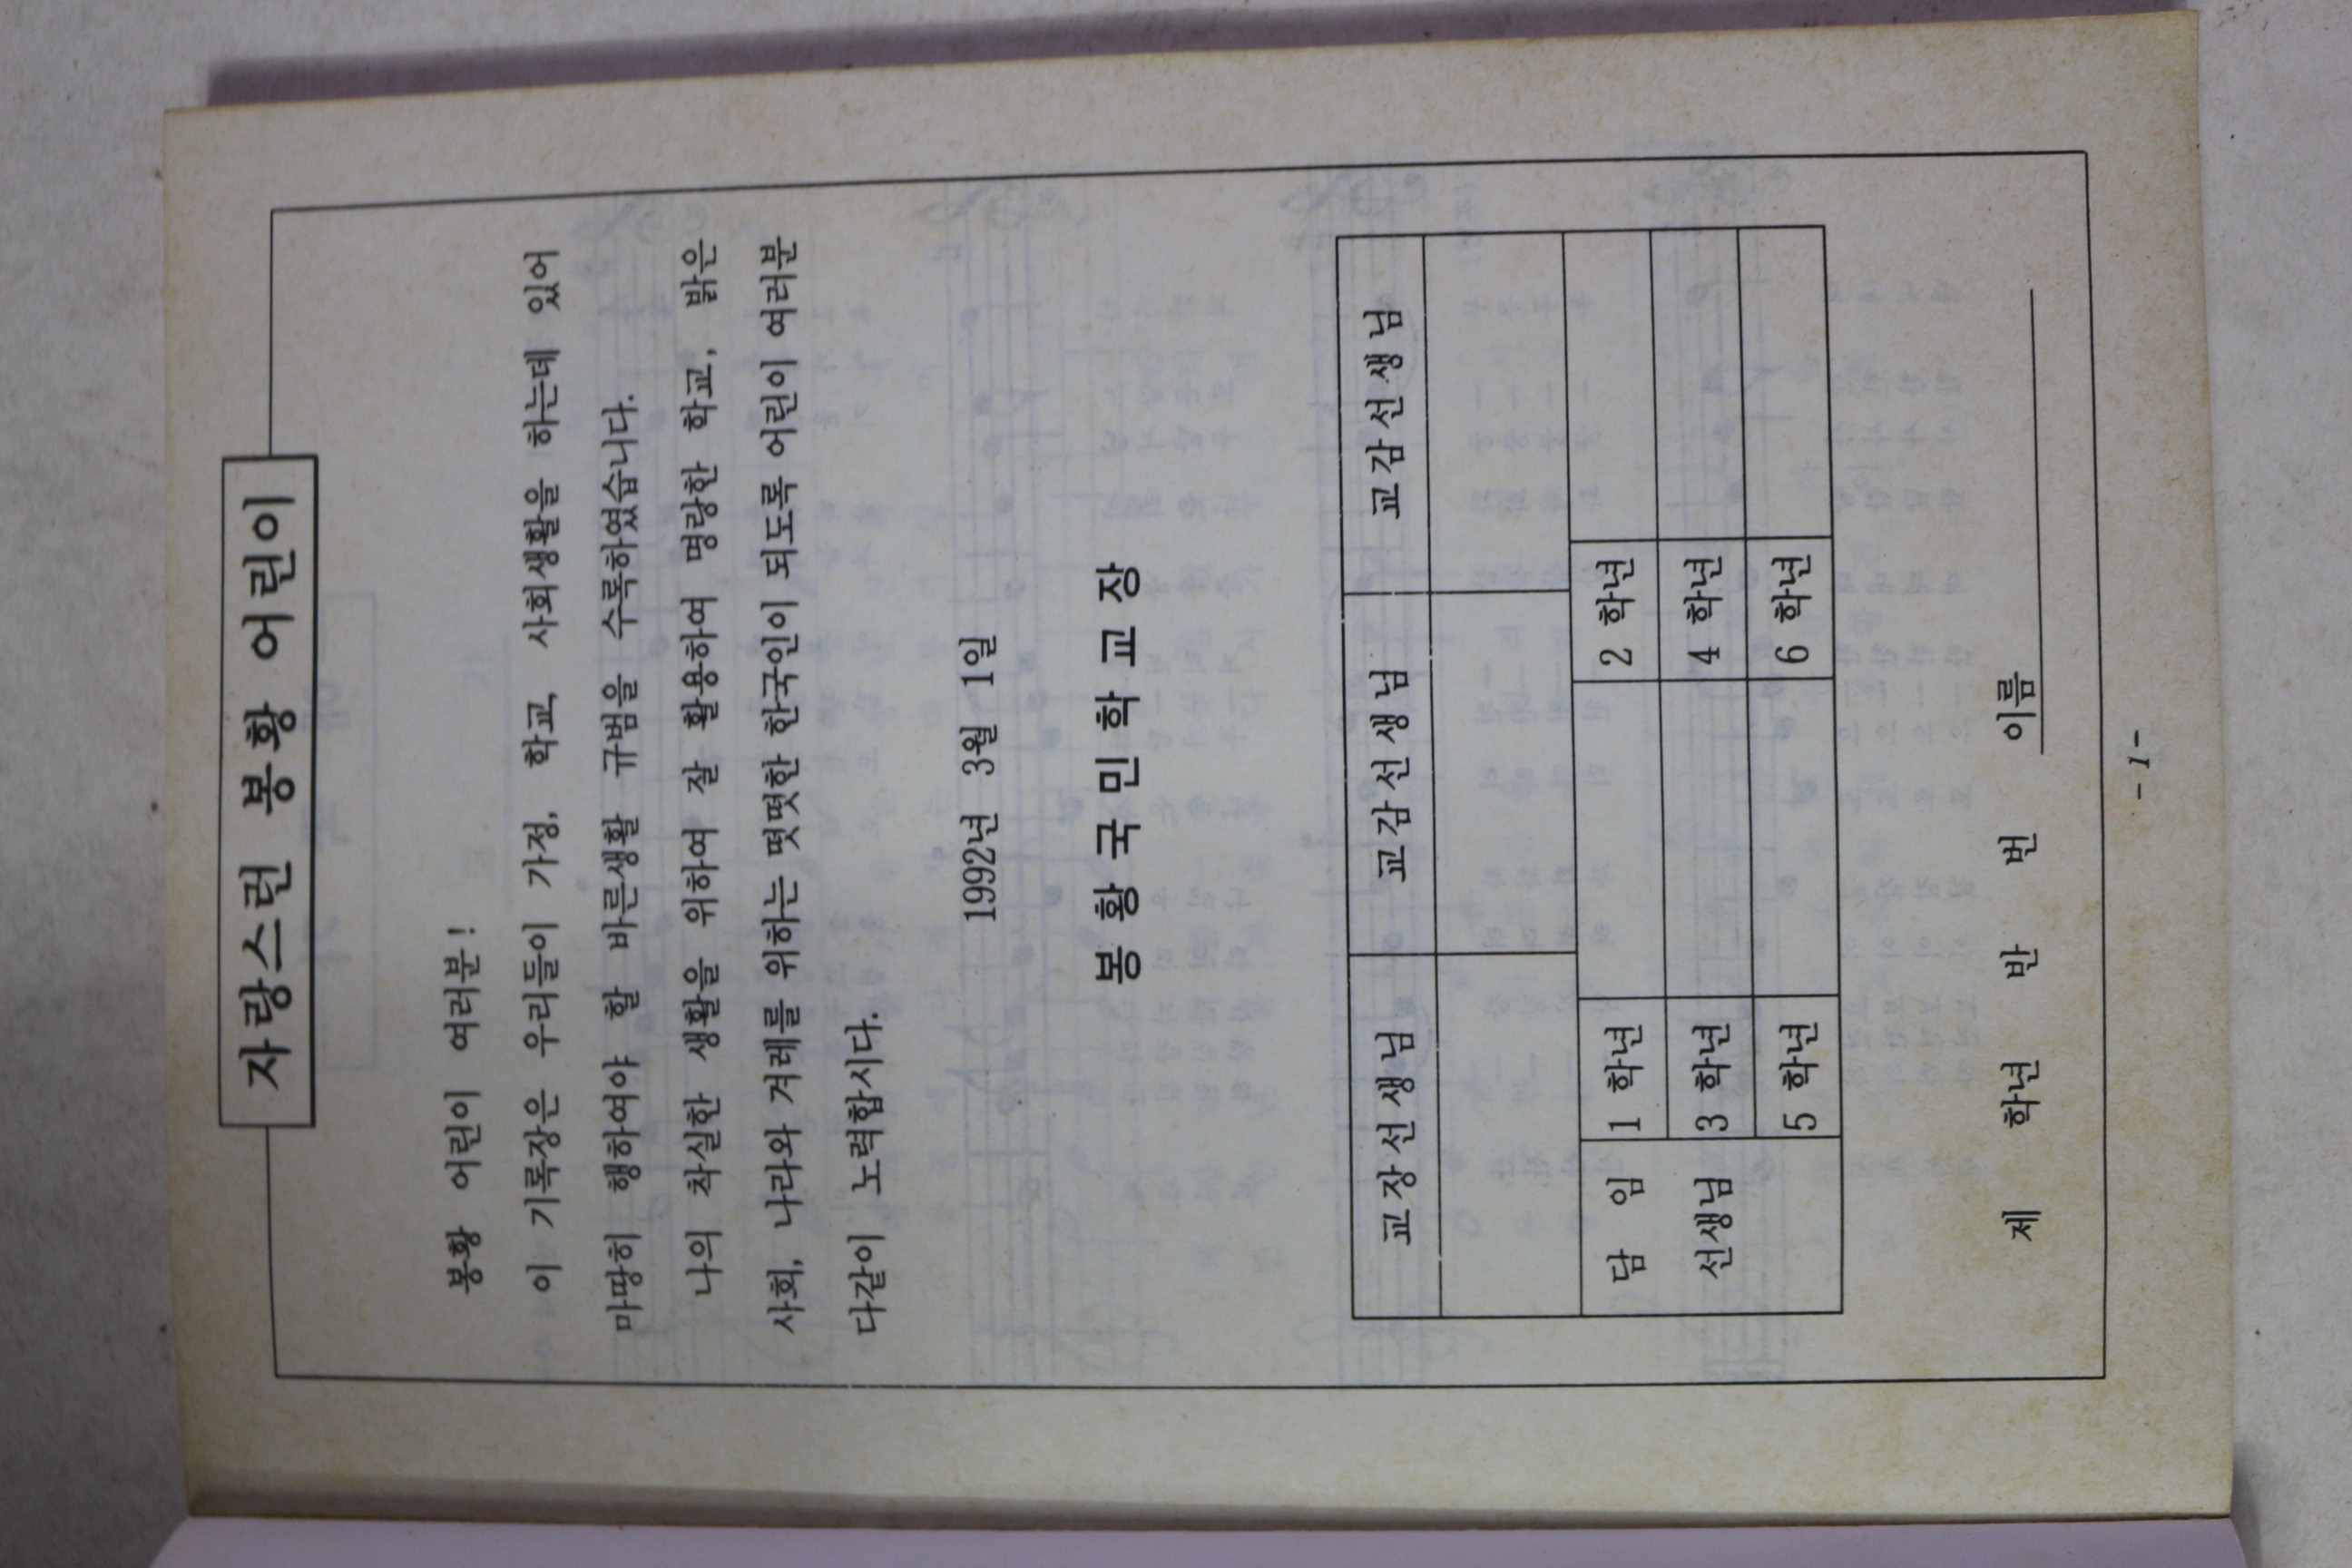 자랑스런 봉황 어린이
봉황 어린이 여러분!
이 기록장은 우리들이 가정, 학교, 사회생활을 하는데 있어
마땅히 행하여야 할 바른생활 규범을 수록하였습니다.
나의 착실한 생활을 위하여 잘 활용하여 명랑한 학교, 밝은
사회, 나라와 겨레를 위하는 떳떳한 한국인이 되도록 어린이 여러분
다같이 노력합시다.
1992년 3월 1일
봉황국민학교장
교장선생님 교감선생님 교감선생님
담 임 1 학년 2 학년
선생님 3 학년 4 학년
5 학년 6 학년
제 학년 반 번 이름
- 1 -